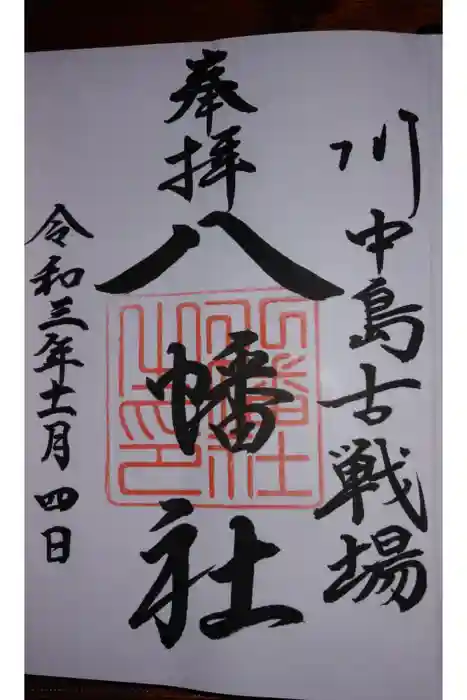 川中島古戦場
奉拝
八幡社
八幡社之印
令和三年十一月四日